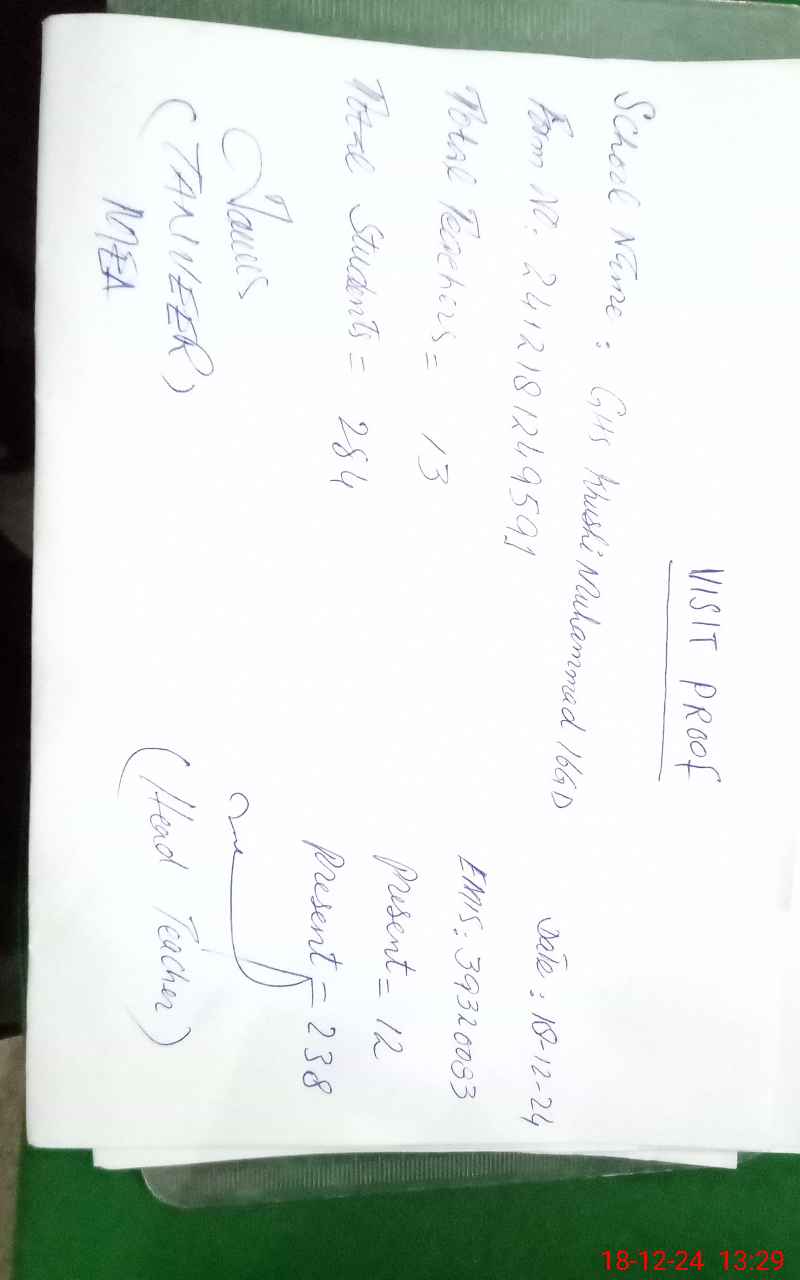 VISIT PROOF
School Name : GHS Khushi Muhammad 16GD Date : 18-12-24
Form No: 2412181249591 EMIS: 39320083
Total Teachers = 13 Present = 12
Total Students = 284 Present = 238
(TANVEER) (Head Teacher)
MEA
18-12-24 13:29